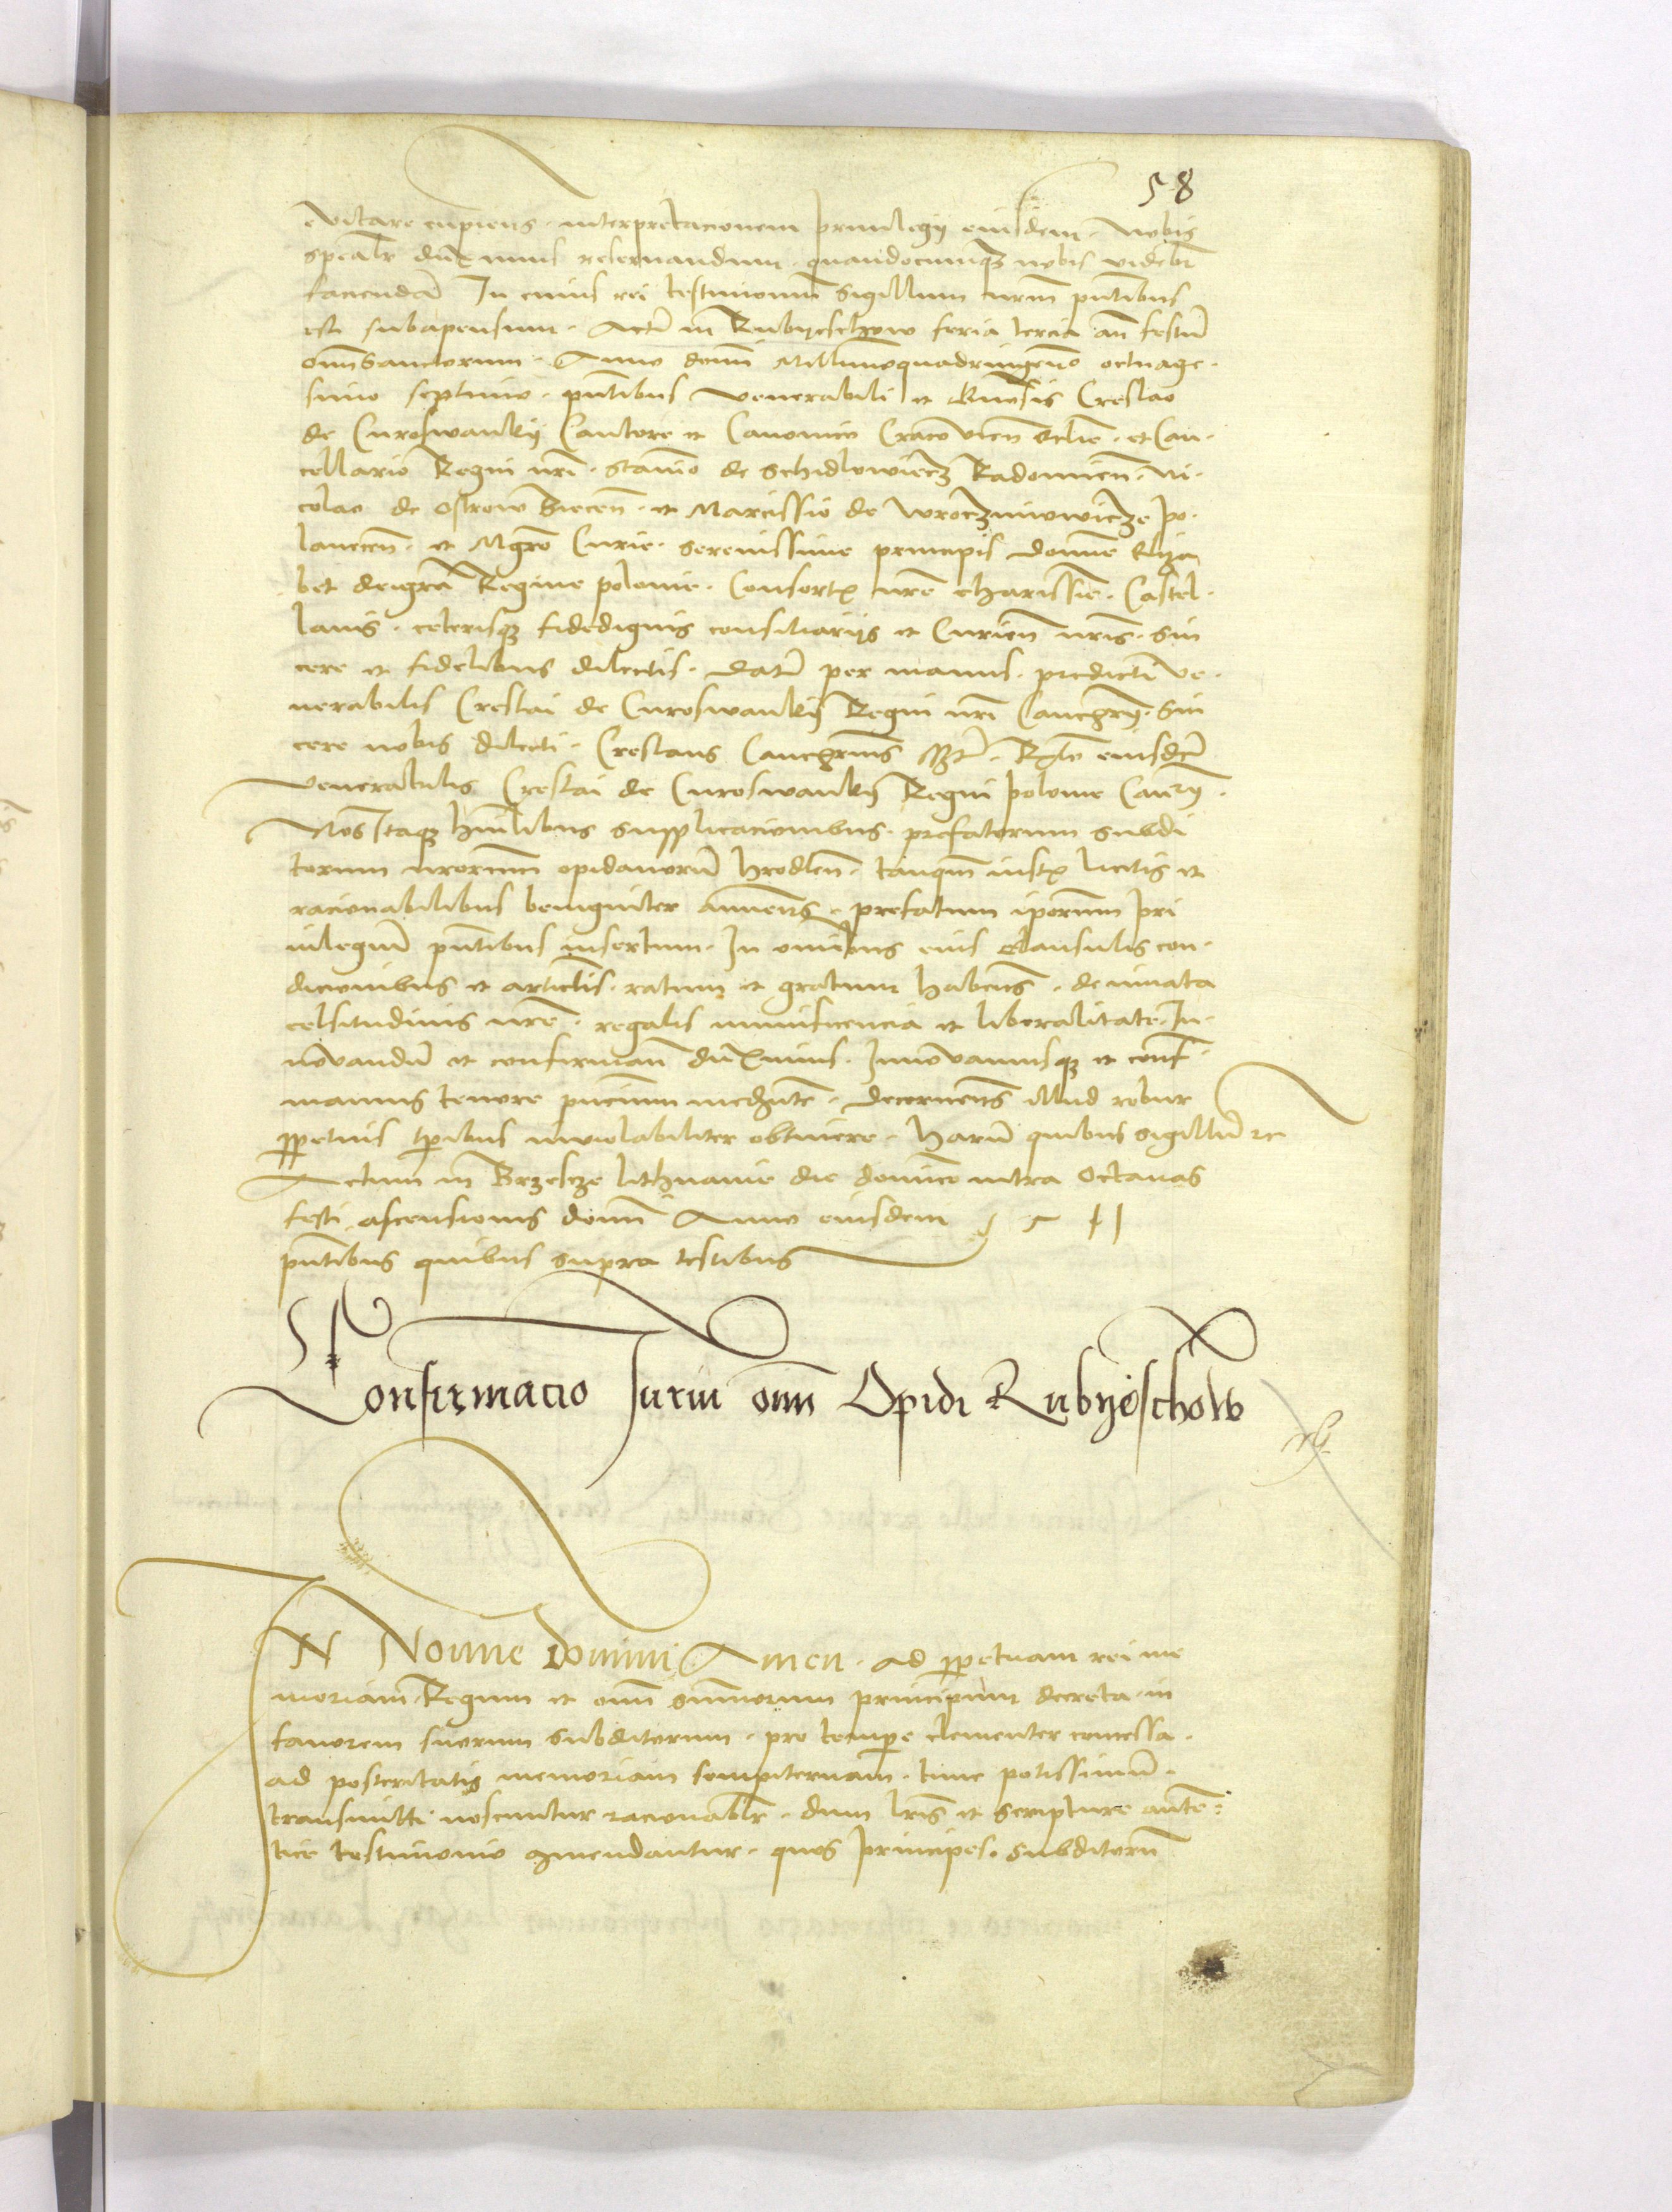 58
evitare cupiens · interpretacionem privilegij eiusdem · nobis
spealr duximus reservandum · quandocumq nobis videbit
faciendam In cuius rei testimonium Sigillum nrm pntibus
est subapensum · Actum in Rubyeschow feria tercia an festum
omn Sanctorum · Anno domi Millimoquadringeno octuage
simo septimo · pntibus venerabili et Creslao
de Curoswanky Cantore et Canonico Cracovien · et Can
cellario Regni nri · Stanio de Schidlowiecz Radomien · Ni
colao de Ostrow et Narcissio de Wroczmowicze po
lanecen · et Mgro Curie · serenissime principis domne Elyza
bet deigra Regine polonie · Consortis nre charissie · Castel
lanis · ceterisq fidedignis consiliarijs et Curien nris · sin
cere et fidelibus dilectis · Datum per manus · predicti ve
nerabilis Creslai de Curoswanky Regni nri Cancgrij · sin
cere nobis dilecti · Creslaus Cancgrius Rlo eiusdem
venerabilis Creslai de Curoswanky Regni polonie Canrij
Nos Itaq humilibus supplicacionibus · prefatorum subdi
torum nrorum opidanorum hrodlen · tanqm iustis licitis et
racionabilibus benigniter annuens · prefatum iporum pri
uilegium pntibus insertum · In omibus eius clausulis con
dicionibus et articlis · ratum et gratum habens · de innata
celsitudinis nre · regalis munificencia et liberalitate · In
novandum et confirmand duximus · Innovamusq et conf
mamus tenore pncium mediante · decernens illud robur
ppetuis tpibus inviolabiliter obtinere · harum quibus sigillum rc
Actum in Brzescze lithuanie die dominico intra Octavas
festi ascensionis domi Anno eiusdem
pntibus quibus supra testibus
Confirmacio Jurium omn Opidi Rubyeschow
rg
IN Nomine Domini Amen · ad ppetuam rei me
moriam · Regum et omn summorum principum decreta · in
favorem suorum subditorum · pro tempe clementer concessa ·
ad posteritatis memoriam sempiternam · tunc potissimum ·
transmitti noscuntur racionablr · dum lris et scripture auten
tice testimonio gmendantur · quos principes · subditorum